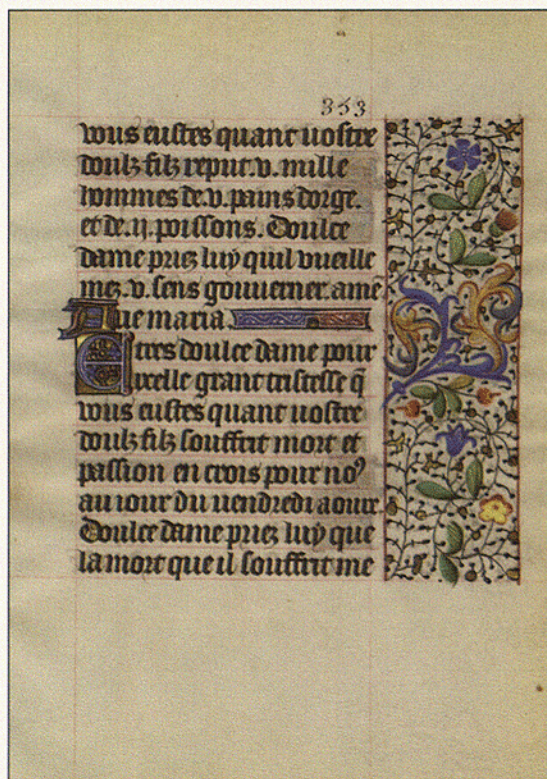 353
vous eustes quant vostre
doulz filz reput .v. mille
hommes de .v. pains dorge.
et de .ij. poissons. Doulce
dame priez luy quil vueille
mez .v. sens gouuerner. amē
Aue maria.
E tres doulce dame pour
ycelle grant tristesse q̄
vous eustes quant vostre
doulz filz souffrit mort et
passion en crois pour noꝰ
au iour du uendredi aoure.
Doulce dame priez luy que
la mort que il souffrit me